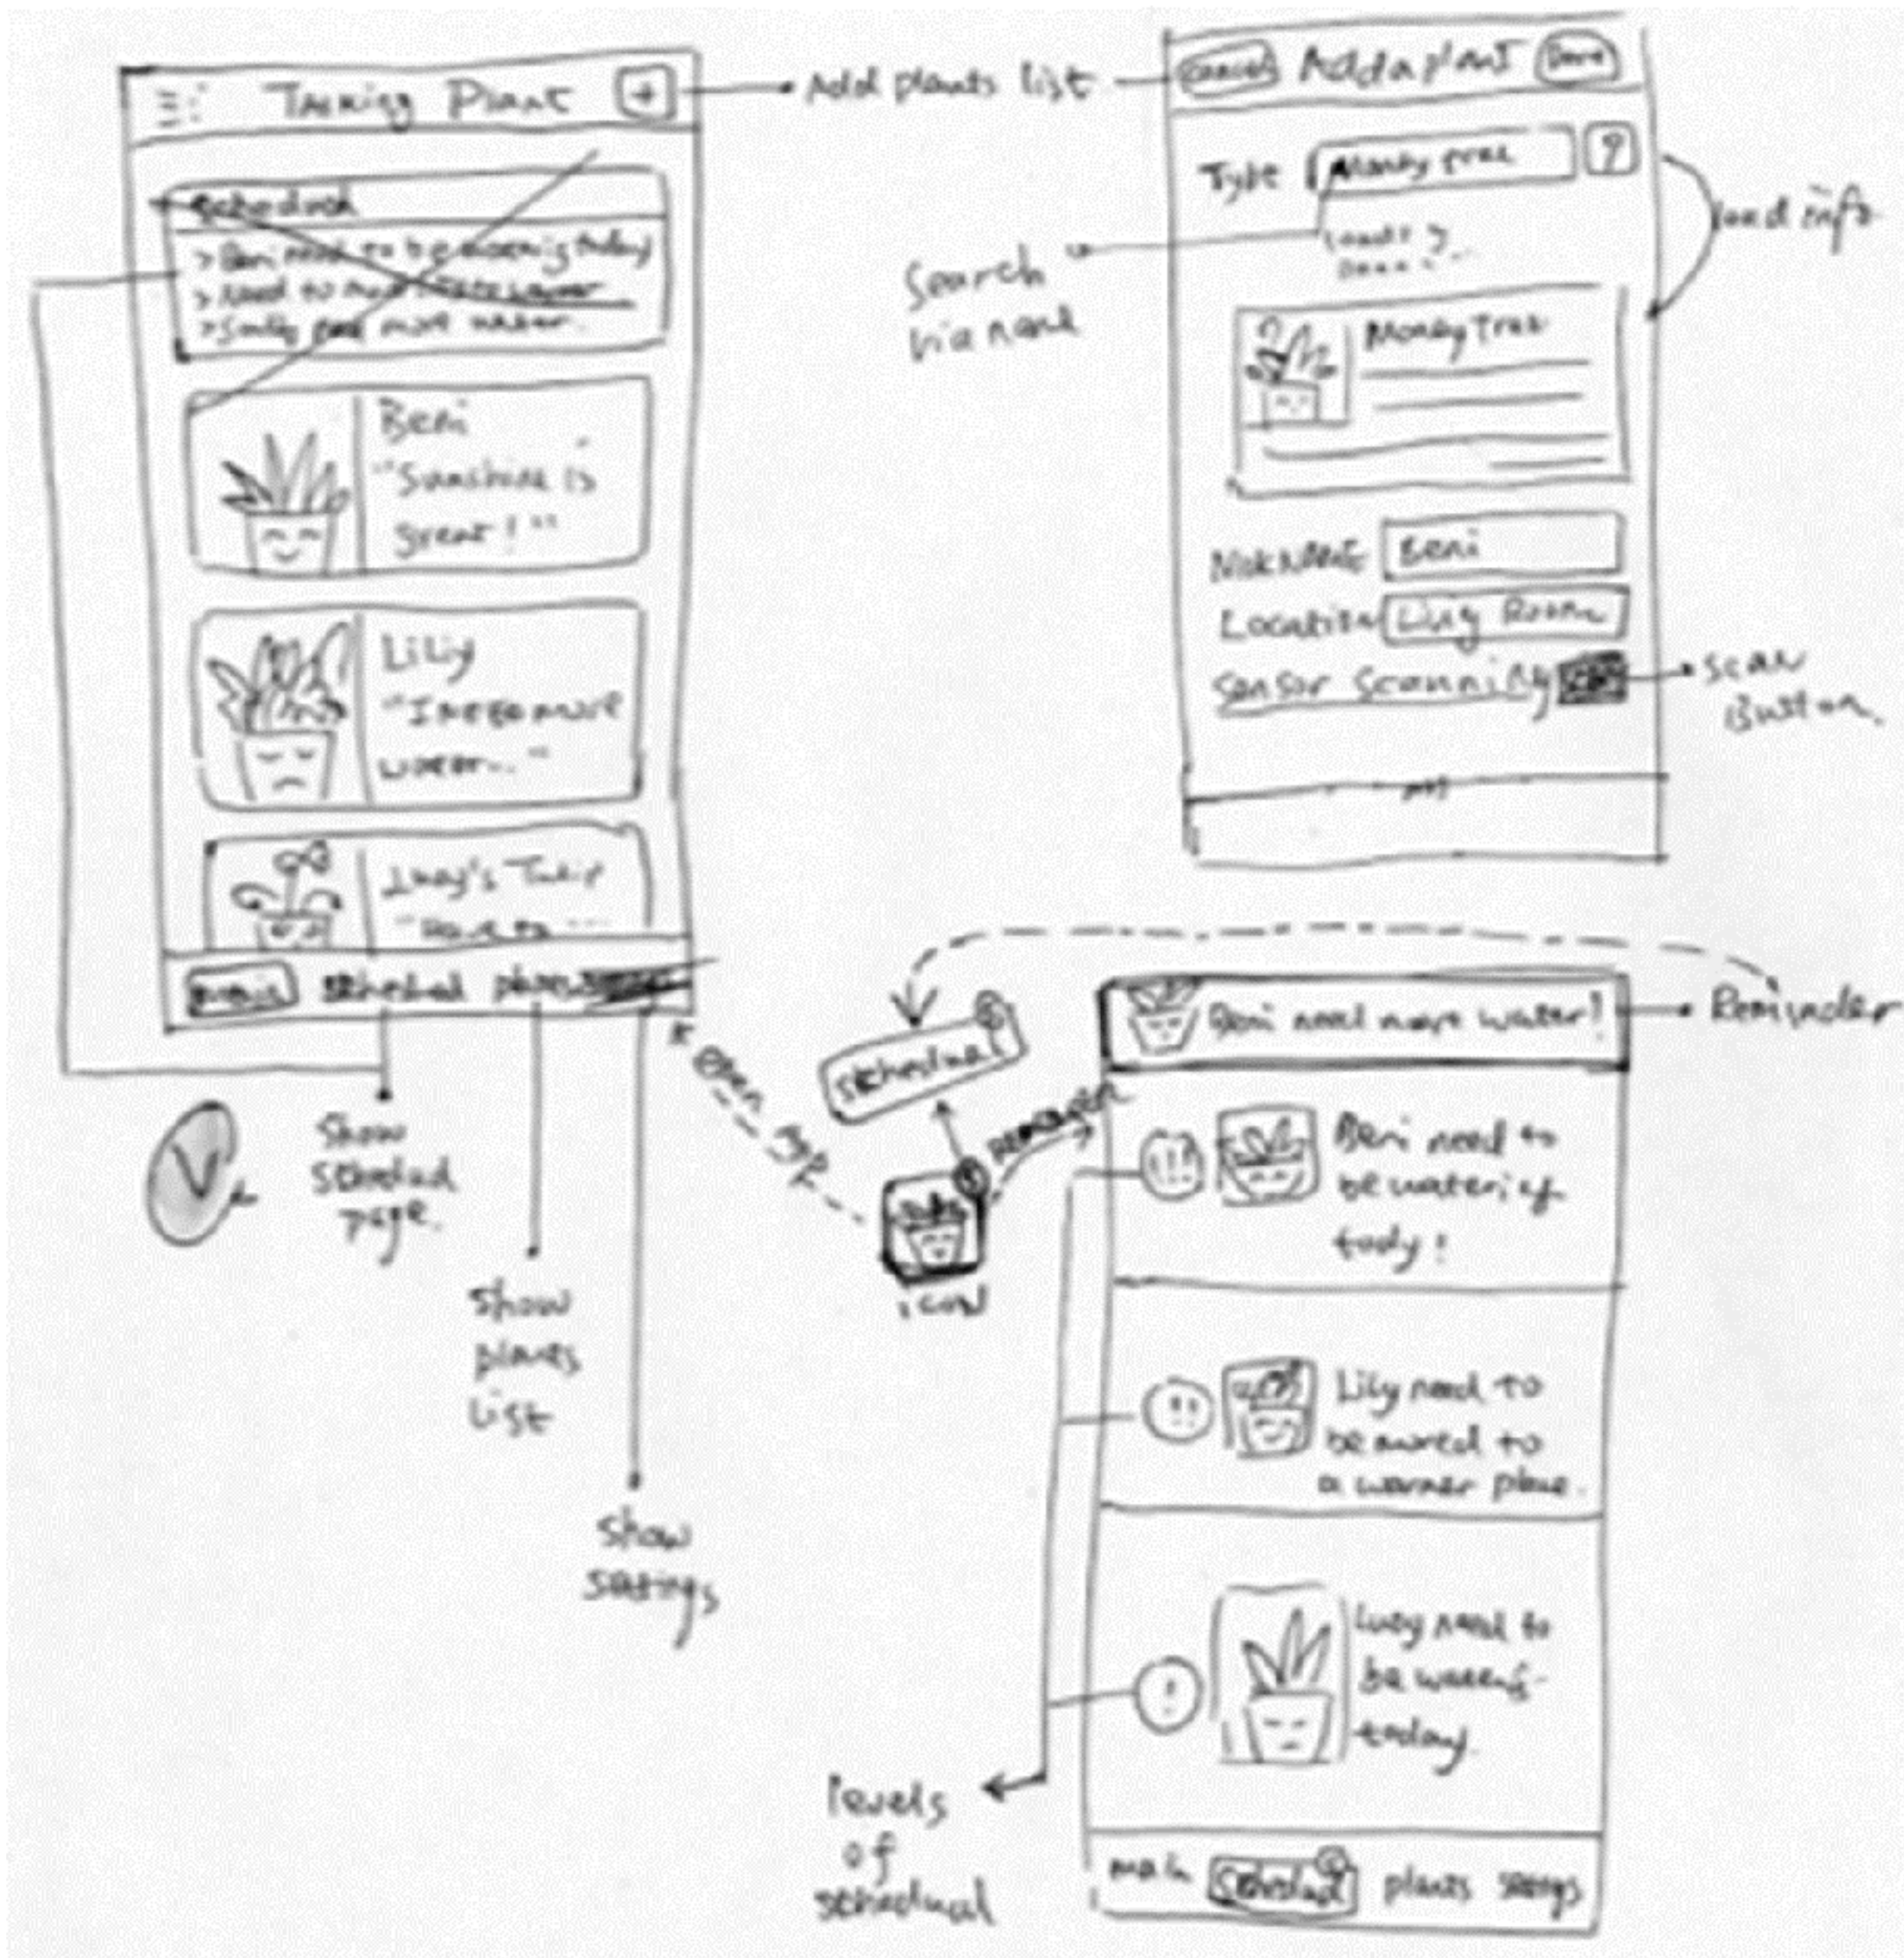 Talking Plant +
Add plants list
Schedual
>Beni need to be waterig today
>Need to
>Sally need more water.
Beni
"Sunshine is
great!"
Liliy
"I need more
water..."
Lucy's Tulip
"Have to ...
main schedual plants
Show
schedual
page.
Show
plants
List
Show
settings
V
Cancel Add a plant Done
Type Money tree ?
load info
Search
via name
Money Tree
NickNAME Beni
Location Livig Room
Sensor Scannig
Scan
Button.
open app
schedual
Reminder
icon
Beni need more water!
Reminder
!!! Beni need to
be waterig
tody!
!! Lily need to
be moved to
a warmer place.
! Lucy need to
be waterig
today.
levels
of
schedual
main schedual plants settings